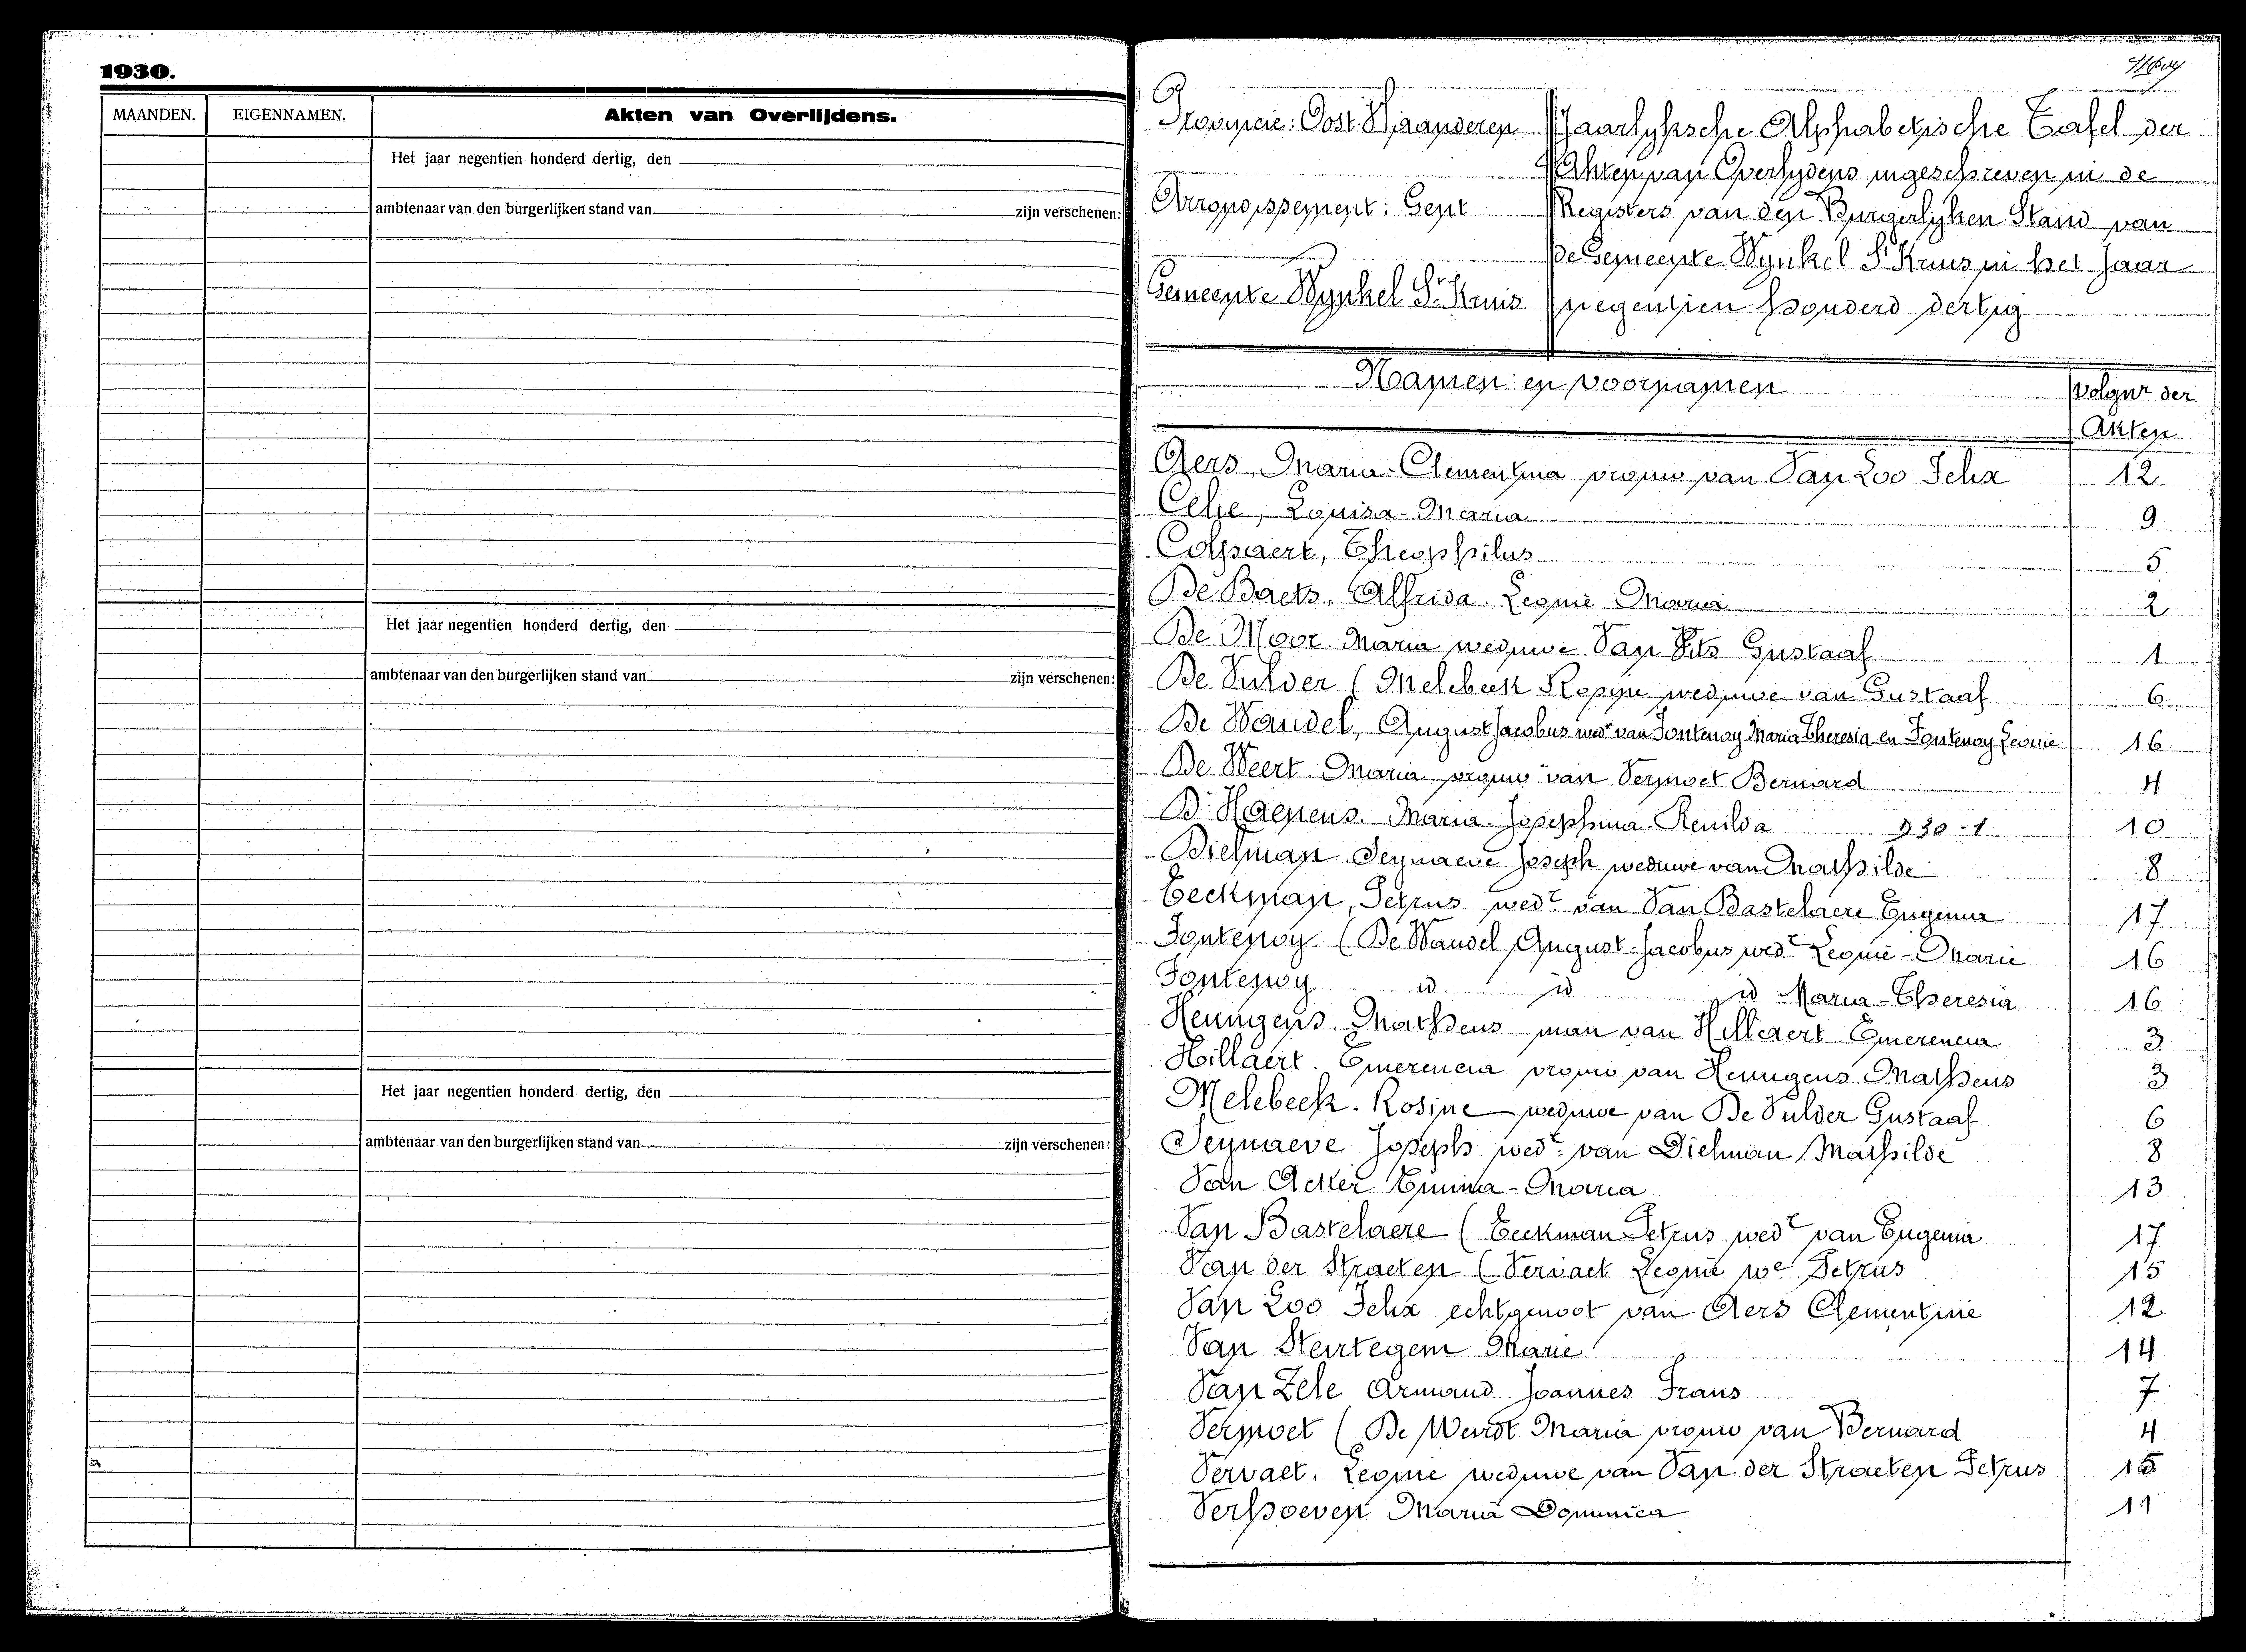 1930.
MAANDEN. EIGENNAMEN. Akten van Overlijdens.
Het jaar negentien honderd dertig, den
ambtenaar van den burgerlijken stand van zijn verschenen:
Het jaar negentien honderd dertig, den
ambtenaar van den burgerlijken stand van zijn verschenen:
Het jaar negentien honderd dertig, den
ambtenaar van den burgerlijken stand van zijn verschenen:
Provincie: Oost Vlaanderen
Arrondissement: Gent
Gemeente Wynkel St Kruis
Jaarlyksche Alphabetische Tafel der
Akten van Overlydens ingeschreven in de
Registers van den Burgerlyken Stand van
de Gemeente Wynkel St Kruis in het jaar
negentien honderd dertig
Namen en voornamen Volgnr der
Akten
Aers Maria-Clementina vrouw van Van Loo Felix 12
Celie, Louisa-Maria 9
Colpaert, Theophilus 5
De Baets, Alfrida Leonie Maria 2
De Moor Maria weduwe Van Gustaaf 1
De Vulder (Melebeck Rosine weduwe van Gustaaf 6
De Wandel, August Jacobus wedr van Fontenoy Maria Theresia en Fontenoy Leonie 16
De Weert Maria vrouw van Vermoet Bernard 4
D'Haenens Maria-Josephina-Renilda 10
Dielman Seynaeve Joseph weduwe van Mathilde 8
Eeckman, Petrus wedr van Van Bastelaere Eugenia 17
Fontenoy (De Wandel August-Jacobus wedr Leonie-Marie 16
Fontenoy id id id Maria-Theresia 16
Heungens Matheus man van Hillaert Emerencia 3
Hillaert Emerencia vrouw van Heungens Matheus 3
Melebeck. Rosine weduwe van De Vulder Gustaaf 6
Seynaeve Joseph wedr van Dielman Mathilde 8
Van Acker Emma-Maria 13
Van Bastelaere (Eeckman Petrus wedr van Eugenia 17
Van der Straeten (Vervaet Leonie we Petrus 15
Van Loo Felix echtgenoot van Aers Clementine 12
Van Steirtegem Marie 14
Van Zele Armand Joannes Frans 7
Vermoet (De Weirdt Maria vrouw van Bernard 4
Vervaet. Leonie weduwe van Van der Straeten Petrus 15
Verhoeven Maria Dominica 11